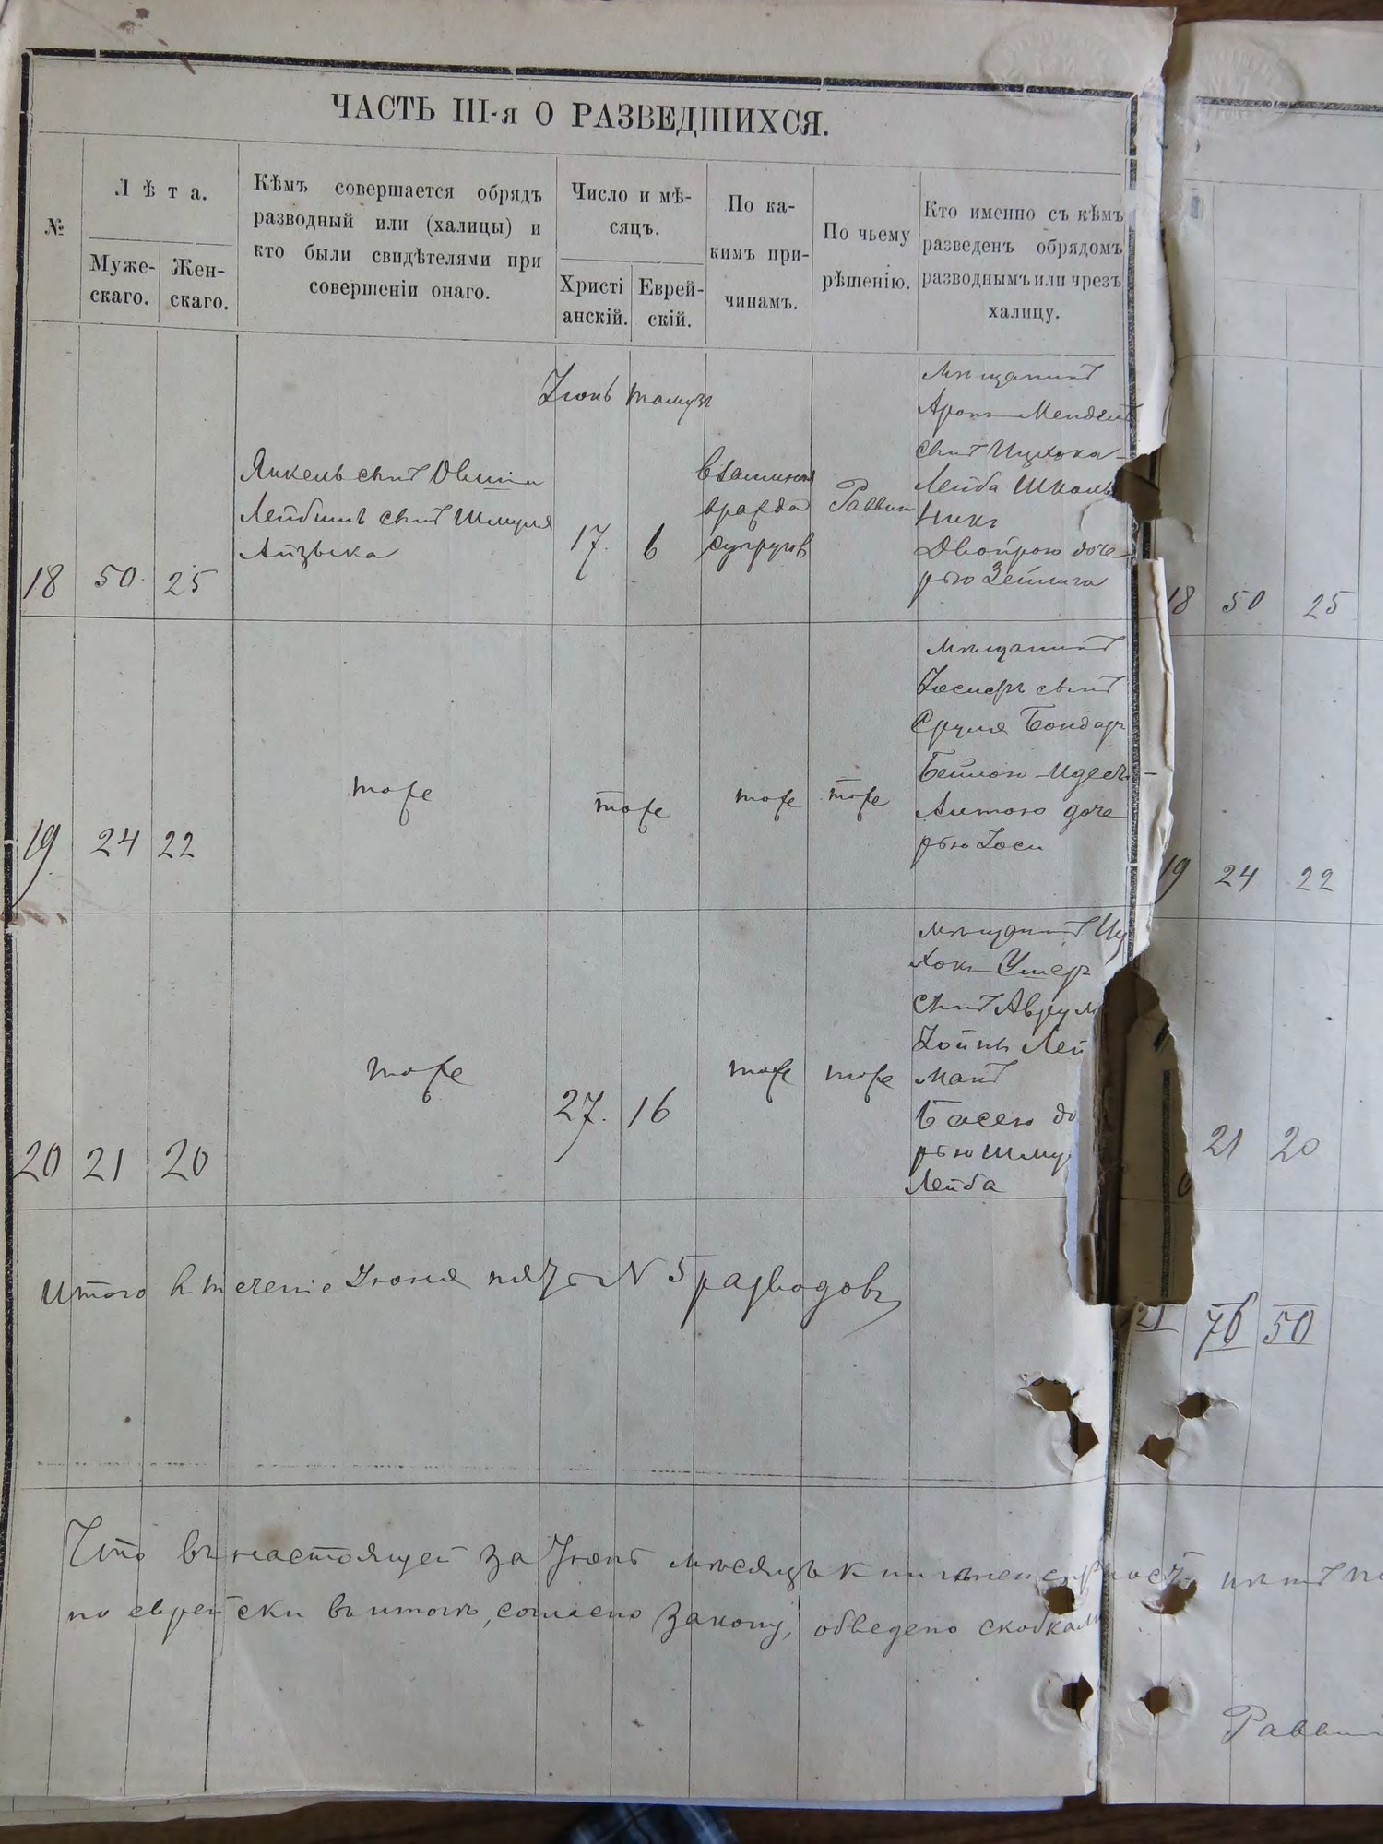 ЧАСТЬ III-я О РАЗВЕДШИХСЯ.
№
Лѣта.
Муже-
скаго.
Жен-
скаго.
Кѣмъ совершается обрядъ
разводный или (халицы) и
кто были свидѣтелями при
совершеніи онаго.
Число и мѣ-
сяцъ.
Христі
анскій.
Еврей-
скій.
По ка-
кимъ при-
чинамъ.
По чьему
рѣшенію.
Кто именно съ кѣмъ
разведенъ обрядомъ
разводнымъ или чрезъ
халицу.
18 50 25
Янкель сынъ
Лейбишъ сынъ Шмуля
Айзыка
Іюнь тамузъ
17. 6
взаимная
вражда
супруговъ
Раввин
мѣщанинъ
Аронъ-Мендель
сынъ Ицхока-
Лейба Школь
никъ
Двойрою доче-
рью Зейлига
18 50 25
19 24 22
тоже
тоже
тоже
тоже
мѣщанинъ
Іосифъ сынъ
Сруля Бондарь
Бейлою-Идесъ-
дочe
рью Іоси
19 24 22
20 21 20
тоже
27. 16
тоже
тоже
мѣщанинъ Иц
хокъ-Ушеръ
сынъ Аврум
Іойнъ Лей
манъ
Басею до
рью Шму
Лейба
21 20
Итого въ теченіе Іюня пять N 5 разводовъ
21 76 50
Что въ настоящей за Іюнь мѣсяцъ книгѣ нѣтъ
по еврейски въ итогѣ, согласно закону, обведено скобками
Раввин